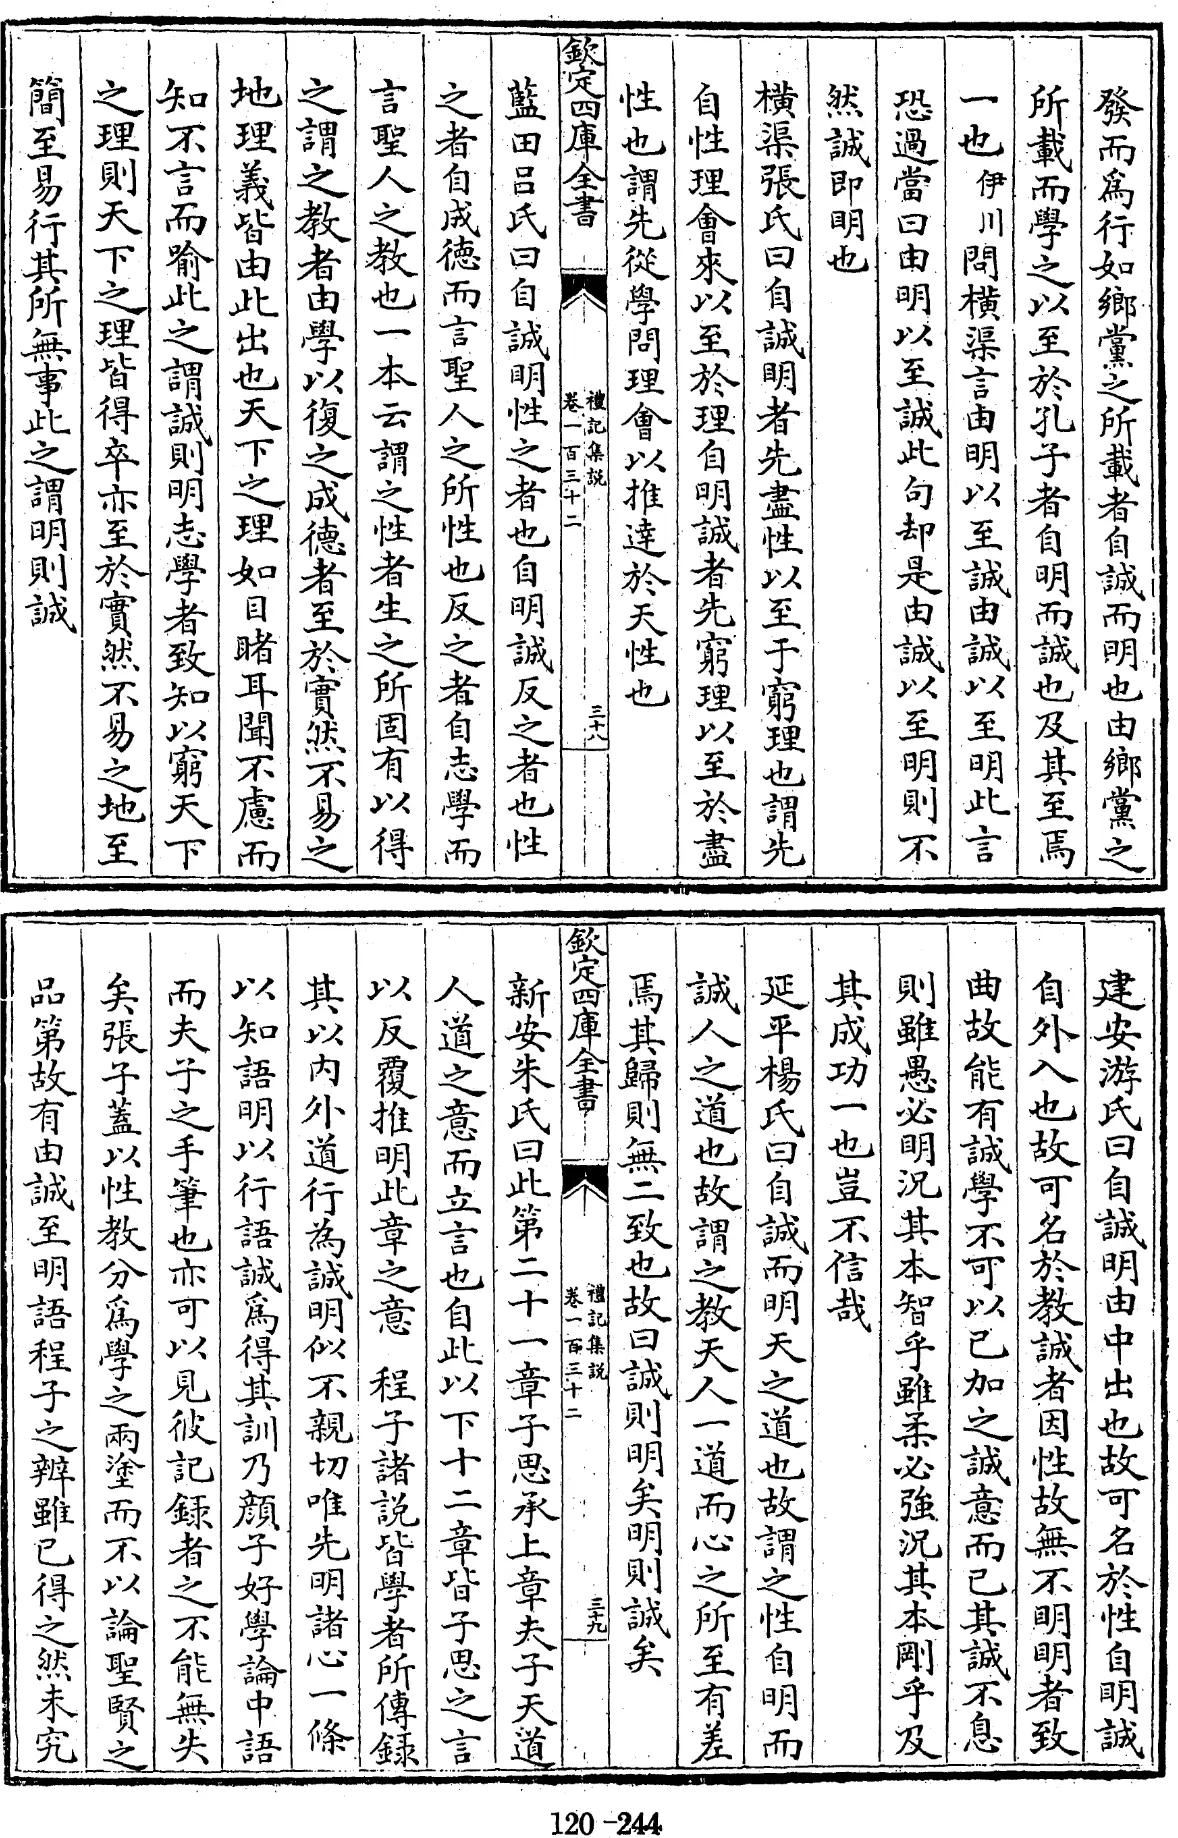 發而爲行如鄉黨之所載者自誠而明也由鄉黨之
所載而學之以至於孔子者自明而誠也及其至焉
一也 伊川問橫渠言由明以至誠由誠以至明此言
恐過當曰由明以至誠此句却是由誠以至明則不
然誠即明也
橫渠張氏曰自誠明者先盡性以至于窮理也謂先
自性理會來以至於理自明誠者先窮理以至於盡
性也謂先從學問理會以推達於天性也
欽定四庫全書
禮記集說
卷一百三十二
三十八
藍田呂氏曰自誠明性之者也自明誠反之者也性
之者自成德而言聖人之所性也反之者自志學而
言聖人之教也一本云謂之性者生之所固有以得
之謂之教者由學以復之成德者至於實然不易之
地理義皆由此出也天下之理如目睹耳聞不慮而
知不言而喻此之謂誠則明志學者致知以窮天下
之理則天下之理皆得卒亦至於實然不易之地至
簡至易行其所無事此之謂明則誠
建安游氏曰自誠明由中出也故可名於性自明誠
自外入也故可名於教誠者因性故無不明明者致
曲故能有誠學不可以已加之誠意而已其誠不息
則雖愚必明況其本智乎雖柔必強況其本剛乎及
其成功一也豈不信哉
延平楊氏曰自誠而明天之道也故謂之性自明而
誠人之道也故謂之教天人一道而心之所至有差
焉其歸則無二致也故曰誠則明矣明則誠矣
欽定四庫全書
禮記集說
卷一百三十二
三十九
新安朱氏曰此第二十一章子思承上章夫子天道
人道之意而立言也自此以下十二章皆子思之言
以反覆推明此章之意 程子諸說皆學者所傳錄
其以內外道行為誠明似不親切唯先明諸心一條
以知語明以行語誠爲得其訓乃顏子好學論中語
而夫子之手筆也亦可以見彼記録者之不能無失
矣張子蓋以性教分爲學之兩塗而不以論聖賢之
品第故有由誠至明語程子之辨雖已得之然未究
120-244